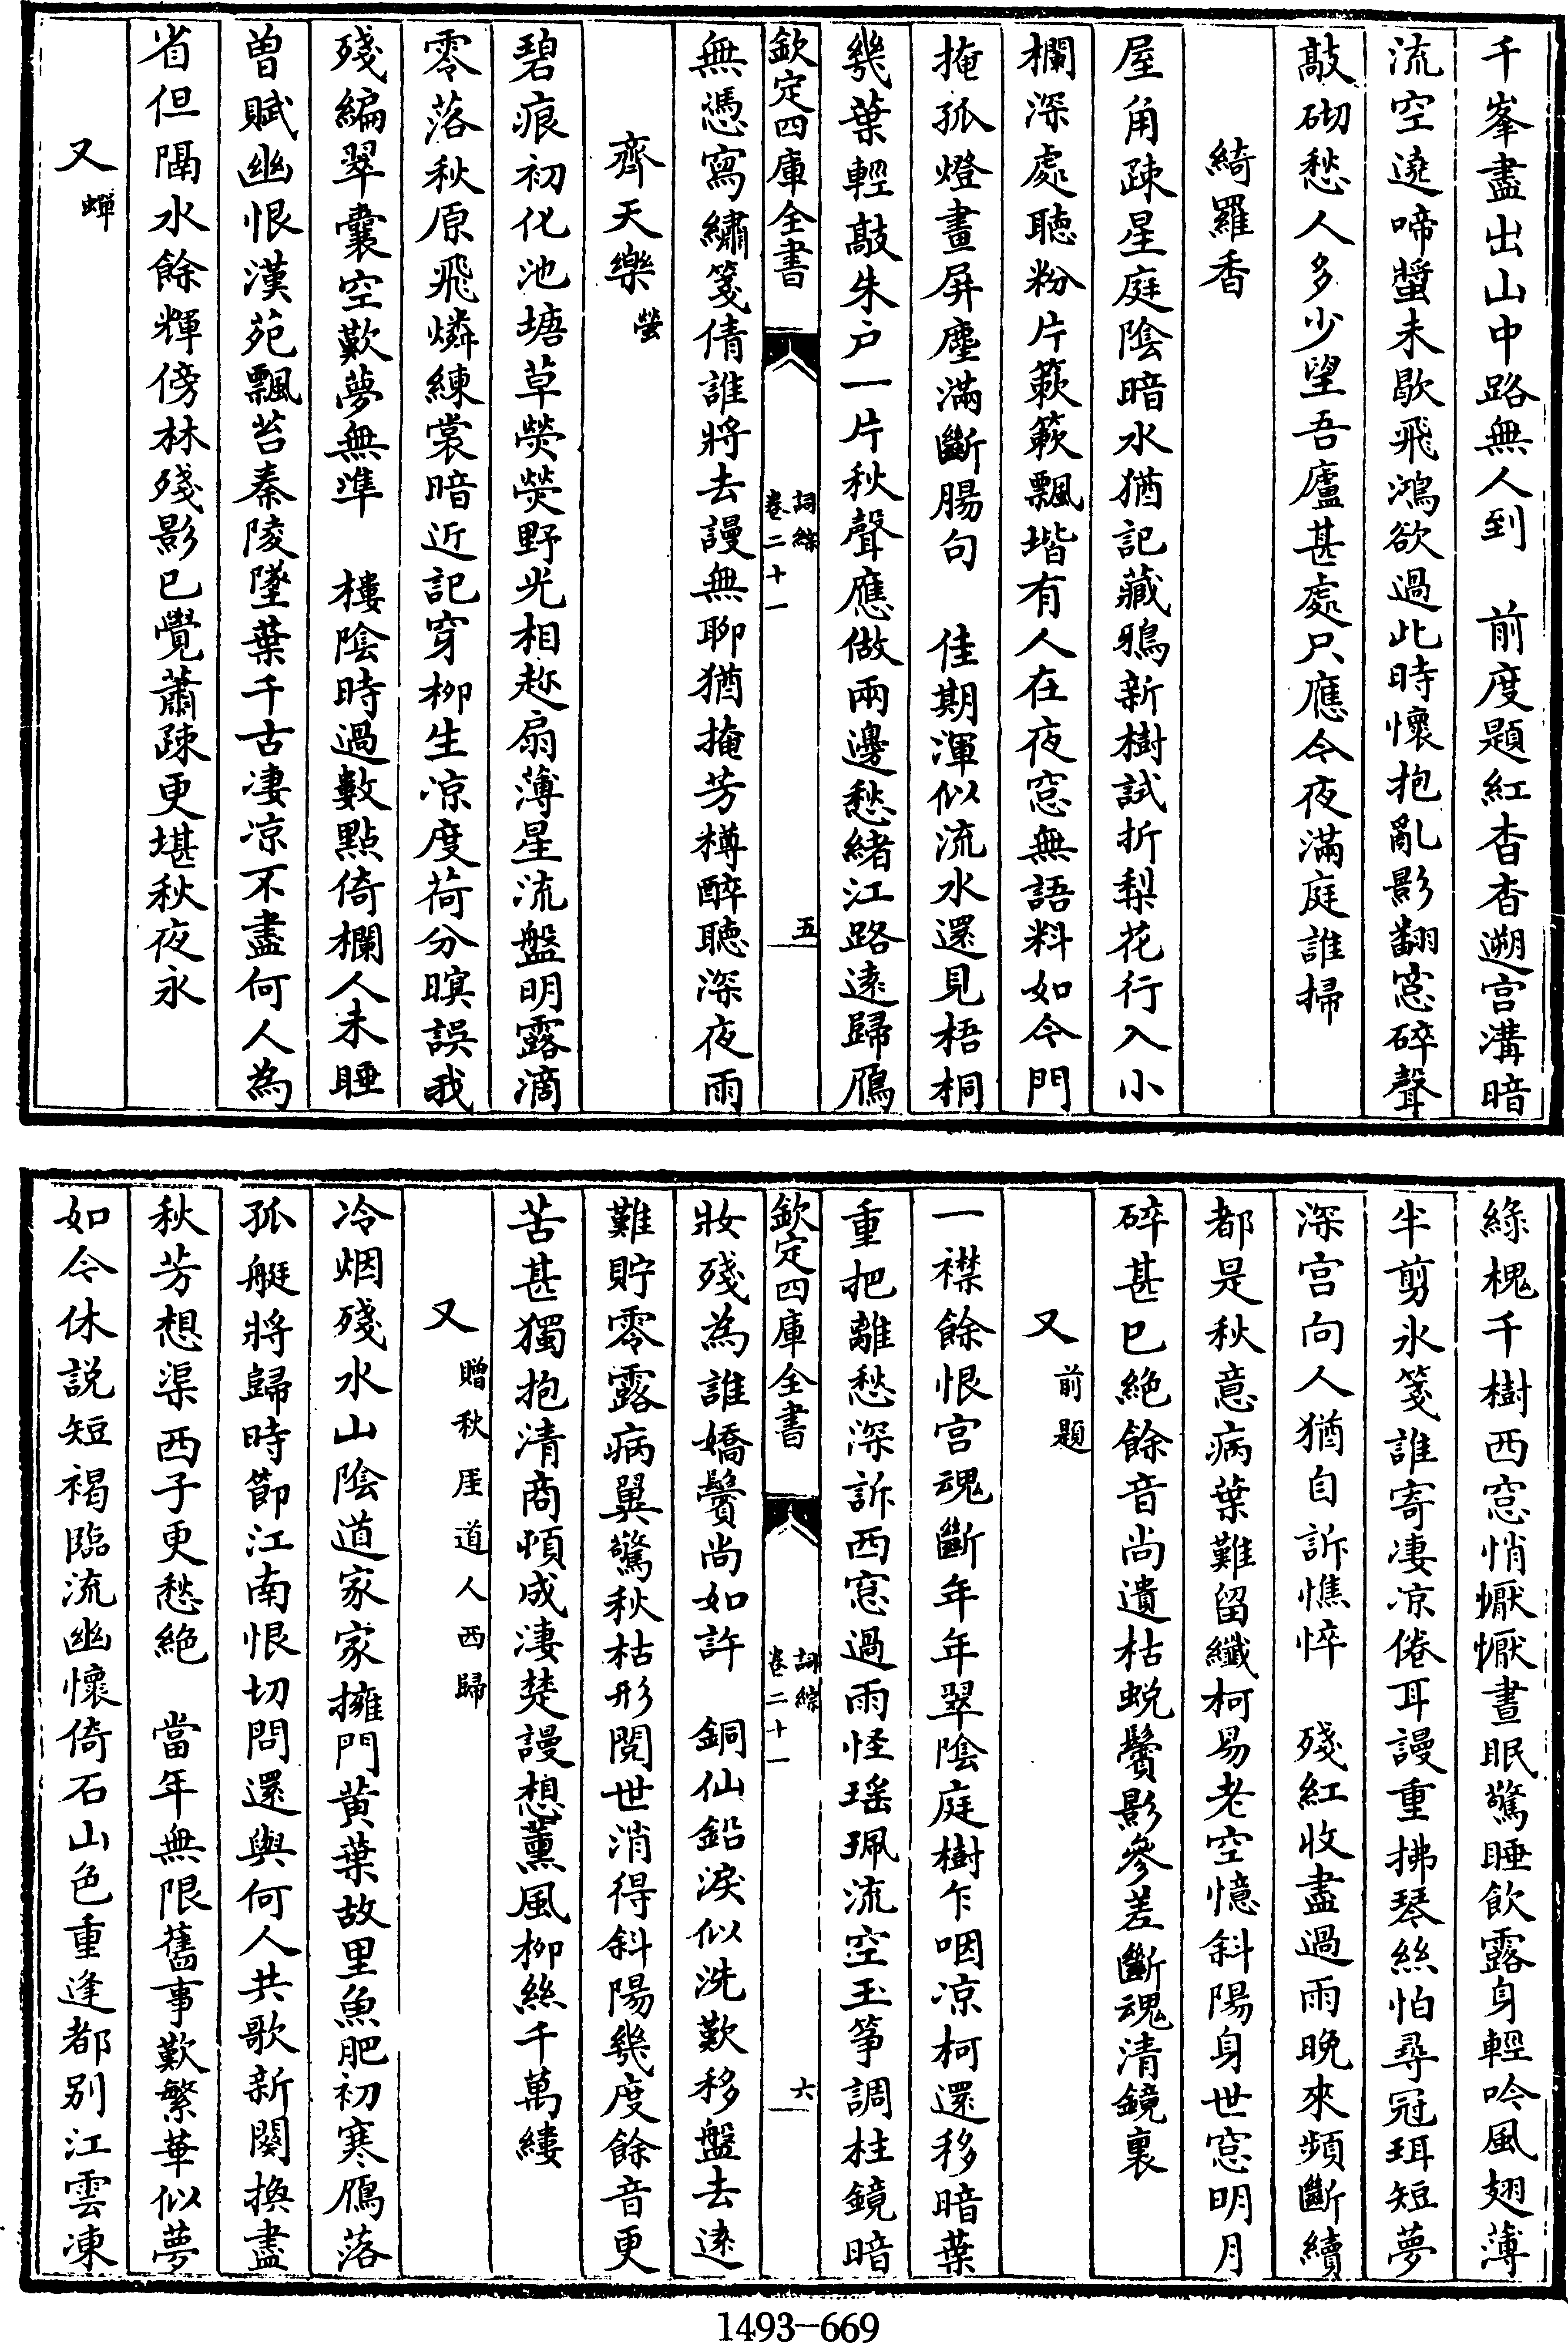 千峯盡出山中路無人到　前度題紅杳杳遡宫溝暗
流空遶啼螿未歇飛鴻欲過此時懷抱亂影翻窓碎聲
敲砌愁人多少望吾廬甚處只應今夜滿庭誰掃
綺羅香
屋角疎星庭陰暗水猶記藏鴉新樹試折梨花行入小
欄深處聽粉片簌簌飄堦有人在夜窓無語料如今門
掩孤燈畫屏塵滿斷腸句　佳期渾似流水還見梧桐
幾葉輕敲朱户一片秋聲應做兩邊愁緒江路逺歸鴈
欽定四庫全書
詞綜
卷二十一
五
無憑寫繡箋倩誰將去謾無聊猶掩芳樽醉聽深夜雨
齊天樂螢
碧痕初化池塘草熒熒野光相趂扇薄星流盤明露滴
零落秋原飛燐練裳暗近記穿栁生凉度荷分暝誤我
殘編翠囊空歎夢無凖　樓陰時過數點倚欄人未睡
曽賦幽恨漢苑飄苔秦陵墜葉千古凄凉不盡何人為
省但隔水餘輝傍林殘影已覺蕭疎更堪秋夜永
又蟬
綠槐千樹西窓悄懨懨晝眠驚睡飲露身輕吟風翅薄
半剪氷箋誰寄凄凉倦耳謾重拂琴絲怕尋冠珥短夢
深宫向人猶自訴憔悴　殘紅收盡過雨晚來頻斷續
都是秋意病葉難留纖柯易老空憶斜陽身世窓明月
碎甚已絶餘音尚遺枯蜕鬢影參差斷魂清鏡裏
又前題
一襟餘恨宫魂斷年年翠陰庭樹乍咽凉柯還移暗葉
重把離愁深訴西窓過雨怪瑶珮流空玉筝調柱鏡暗
欽定四庫全書
詞綜
卷二十一
六
妝殘為誰嬌鬢尚如許　銅仙鉛淚似洗歎移盤去逺
難貯零露病翼驚秋枯形閲世消得斜陽幾度餘音更
苦甚獨抱清商頓成淒楚謾想薰風栁絲千萬縷
又贈秋厓道人西歸
冷烟殘水山陰道家家擁門黄葉故里魚肥初寒鴈落
孤艇將歸時節江南恨切問還與何人共歌新闋換盡
秋芳想渠西子更愁絶　當年無限舊事歎繁華似夢
如今休説短褐臨流幽懷倚石山色重逢都别江雲凍
1493-669